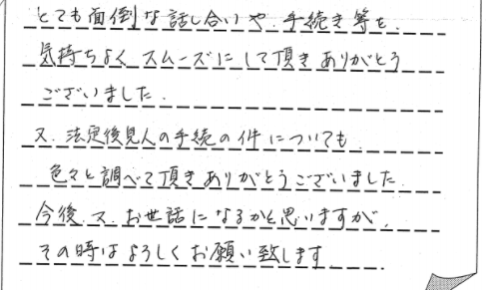 とても面倒な話し合いや、手続き等を、
気持ちよく スムーズにして頂き ありがとう
ございました．
又、法定後見人の手続の件についても、
色々と調べて頂き ありがとうございました．
今後、又、お世話になるかと思いますが、
その時は よろしく お願い致します